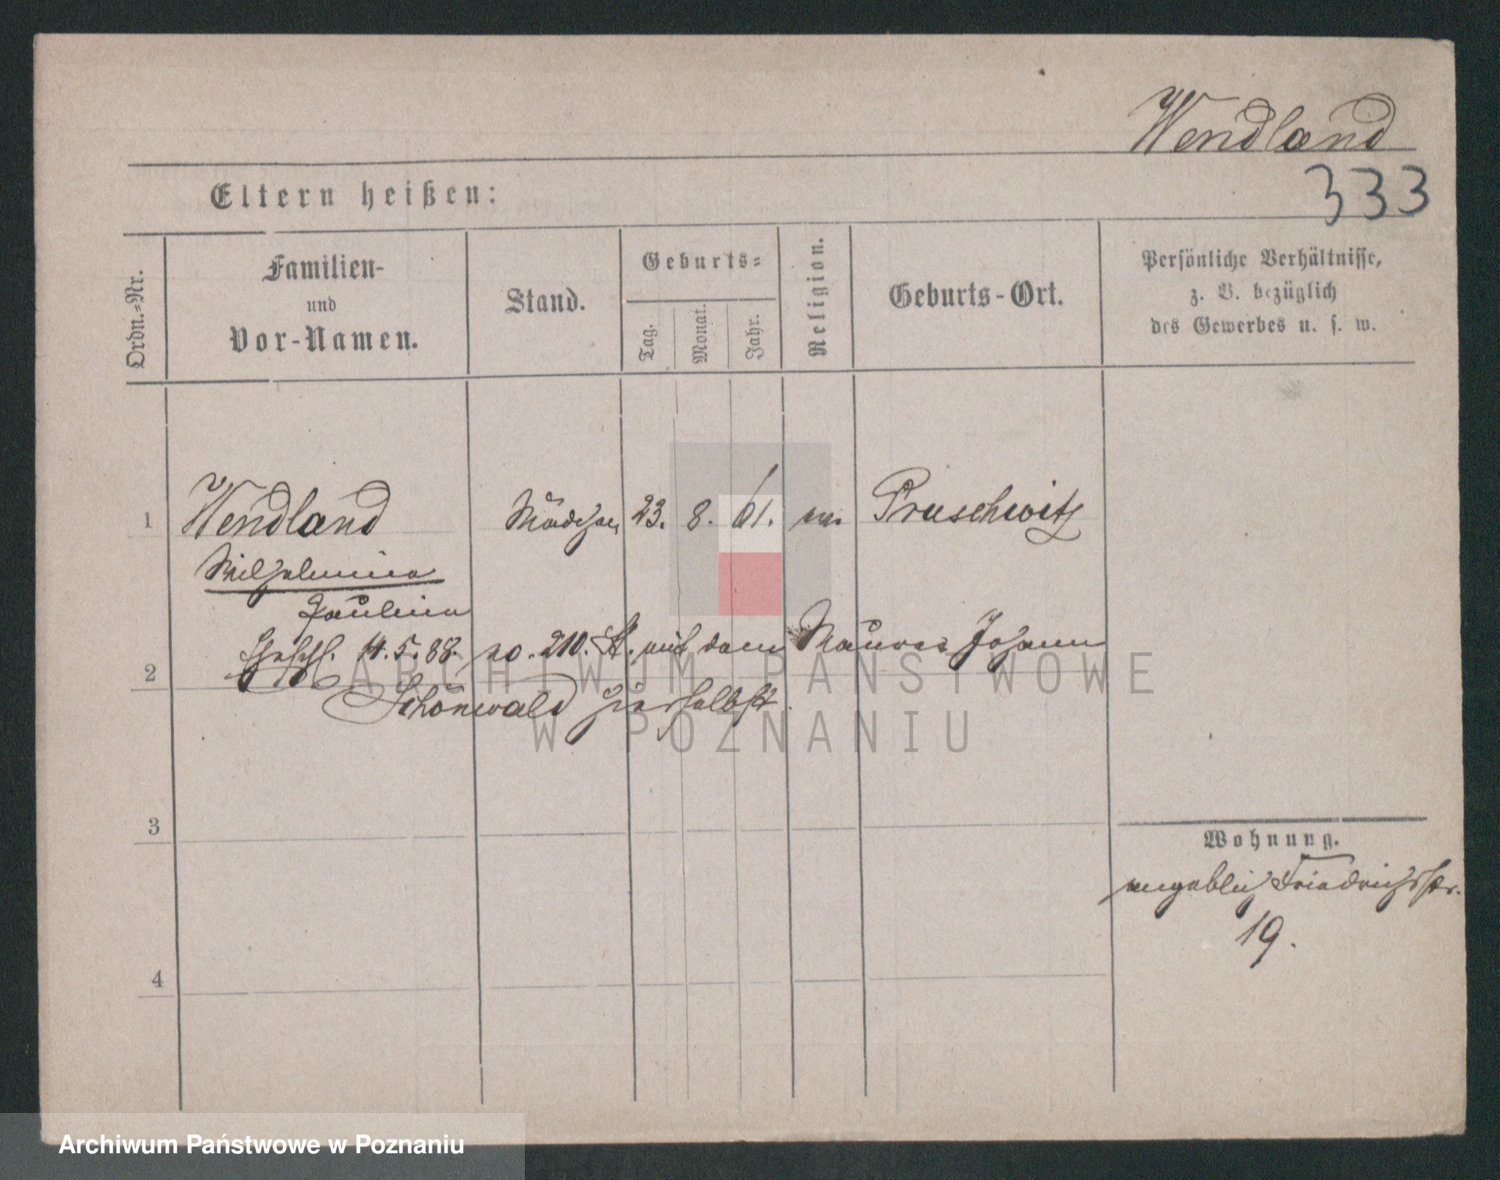 Wendland
333
Eltern heißen:
Ordn.-Nr.
Familien-
und
Vor-Namen.
Stand.
Geburts-
Tag.
Monat.
Jahr.
Religion.
Geburts-Ort.
Persönliche Verhältnisse,
z. B. bezüglich
des Gewerbes u. s. w.
1 Wendland Mädchen 23. 8. 61. ev. Pruschwitz
Wilhelmine
Pauline
14. 5. 88. no. 210. St. mit dem Maurer Johann
2
Schönwald hierselbst
3
Wohnung.
angeblich Friedrichstr.
19.
4
ARCHIWUM PAŃSTWOWE
W POZNANIU
Archiwum Państwowe w Poznaniu